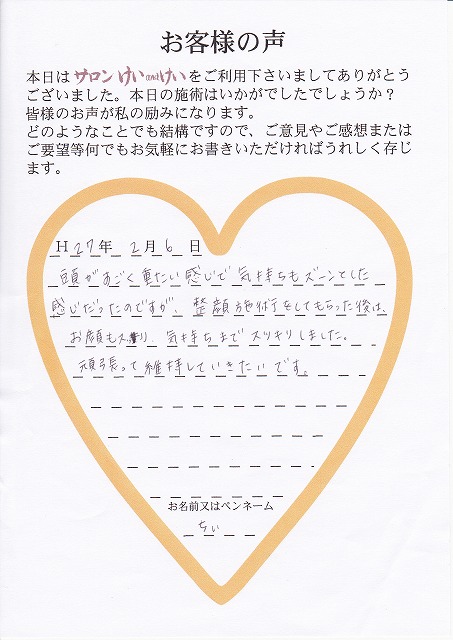 お客様の声
本日はサロンけいandけいをご利用下さいましてありがとう
ございました。本日の施術はいかがでしたでしょうか？
皆様のお声が私の励みになります。
どのようなことでも結構ですので、ご意見やご感想または
ご要望等何でもお気軽にお書きいただければうれしく存じ
ます。
H27年 2月6日
頭がすごく重たい感じで気持ちもズーンとした
感じだったのですが、整顔施術をしてもらった後は、
お顔もスッキリ、気持ちまでスッキリしました。
頑張って維持していきたいです。
お名前又はペンネーム
ちぃ